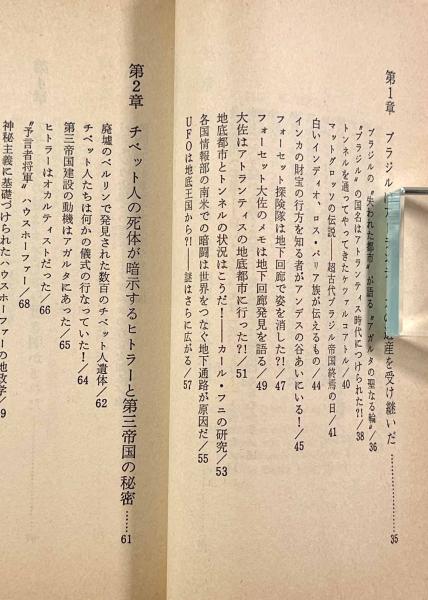 第1章 ブラジルは の遺産を受け継いだ……………35
ブラジルの〝失われた都市〟が語る〝アガルタの聖なる輪〟/36
〝ブラジル〟の国名はアトランティス時代につけられた?!/38
トンネルを通ってやってきたケツァルコアトル/40
マットグロッソの伝説――超古代ブラジル帝国終焉の日/41
白いインディオ、ロス・パリア族が伝えるもの/44
インカの財宝の行方を知る者がアンデスの谷あいにいる!/45
フォーセット探険隊は地下回廊で姿を消した?!/47
フォーセット大佐のメモは地下回廊発見を語る/49
大佐はアトランティスの地底都市に行った?!/51
地底都市とトンネルの状況はこうだ!――カール・フニの研究/53
各国情報部の南米での暗闘は世界をつなぐ地下通路が原因だ/55
UFOは地底王国から?!――謎はさらに広がる/57
第2章 チベット人の死体が暗示するヒトラーと第三帝国の秘密……61
廃墟のベルリンで発見された数百のチベット人遺体/62
チベット人たちは何かの儀式の行なっていた!/64
第三帝国建設の動機はアガルタにあった/65
ヒトラーはオカルティストだった/66
〝予言者将軍〟ハウスホーファー/68
神秘主義に基づけられたハウスホーファーの地政学/9